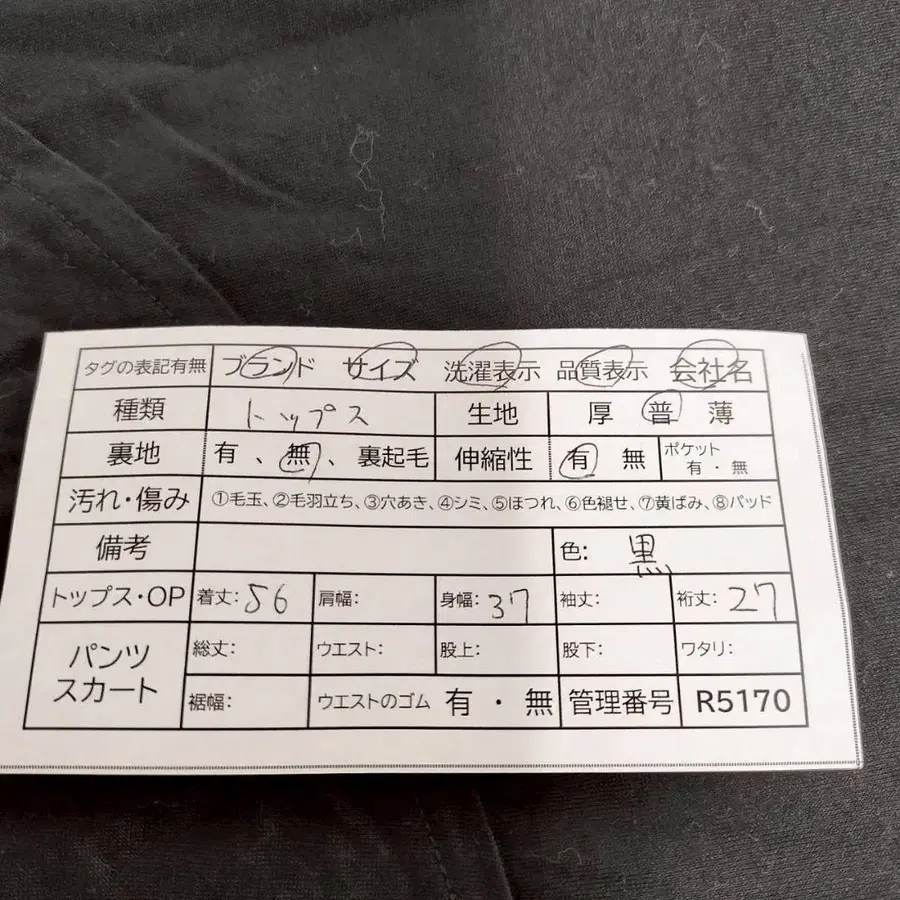 タグの表記有無 ブランド サイズ 洗濯表示 品質表示 会社名
種類 トップス 生地 厚 普 薄
裏地 有 、無、裏起毛 伸縮性 有 無 ポケット 有・無
汚れ・傷み ①毛玉、②毛羽立ち、③穴あき、④シミ、⑤ほつれ、⑥色褪せ、⑦黄ばみ、⑧パッド
備考 色: 黒
トップス・OP 着丈: 56 肩幅: 身幅: 37 袖丈: 裄丈: 27
パンツ スカート 総丈: ウエスト: 股上: 股下: ワタリ:
裾幅: ウエストのゴム 有・無 管理番号 R5170